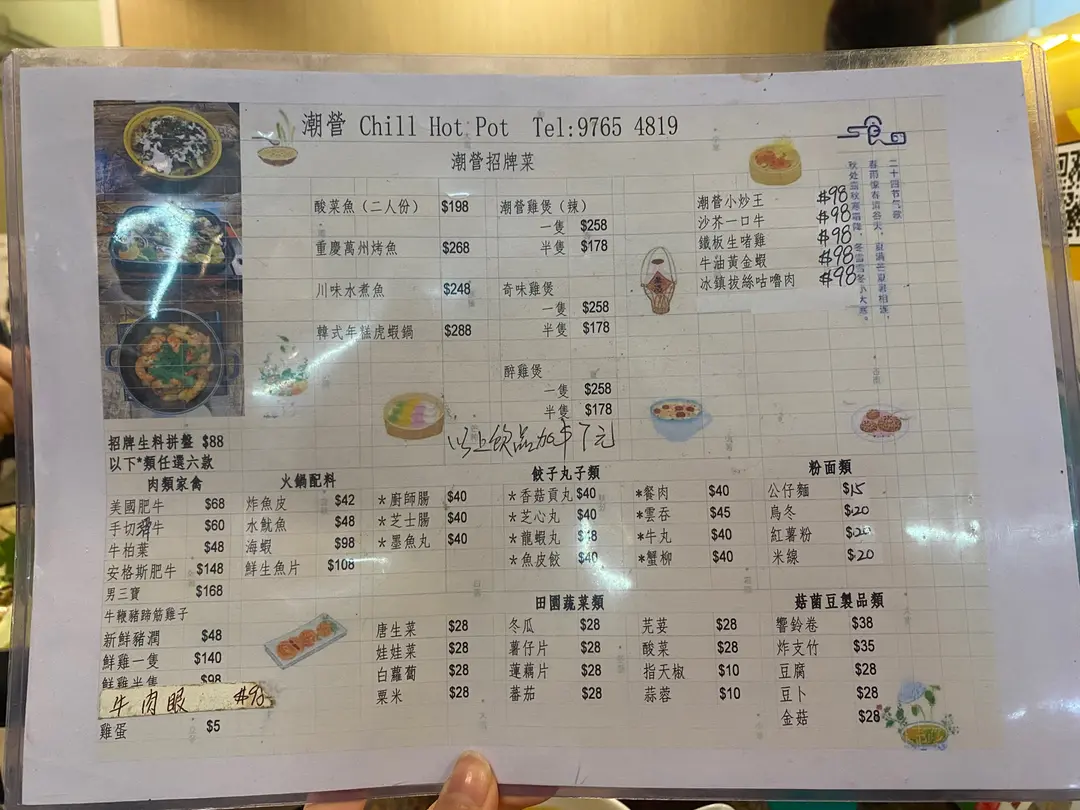 潮營 Chill Hot Pot Tel:9765 4819
潮營招牌菜
酸菜魚（二人份） $198
重慶萬州烤魚 $268
川味水煮魚 $248
韓式年糕虎蝦鍋 $288
潮營雞煲（辣）
一隻 $258
半隻 $178
奇味雞煲
一隻 $258
半隻 $178
醉雞煲
一隻 $258
半隻 $178
潮營小炒王 $98
沙芥一口牛 $98
鐵板生啫雞 $98
牛油黃金蝦 $98
冰鎮拔絲咕嚕肉 $98
二十四节气歌
春雨惊春清谷天，夏满芒夏暑相连，
秋处露秋寒霜降，冬雪雪冬小大寒。
以上飲品加$7元
招牌生料拼盤 $88
以下*類任選六款
肉類家禽
美國肥牛 $68
手切牛 $60
牛柏葉 $48
安格斯肥牛 $148
男三寶 $168
牛鞭豬蹄筋雞子
新鮮豬潤 $48
鮮雞一隻 $140
鮮雞半隻 $98
牛肉眼 $98
雞蛋 $5
火鍋配料
炸魚皮 $42
水魷魚 $48
海蝦 $98
鮮生魚片 $108
*廚師腸 $40
*芝士腸 $40
*墨魚丸 $40
餃子丸子類
*香菇貢丸 $40
*芝心丸 $40
*龍蝦丸
*魚皮餃 $40
*餐肉 $40
*雲吞 $45
*牛丸 $40
*蟹柳 $40
粉面類
公仔麵 $15
烏冬 $20
紅薯粉 $20
米線 $20
田園蔬菜類
唐生菜 $28
娃娃菜 $28
白蘿蔔 $28
粟米 $28
冬瓜 $28
薯仔片 $28
蓮藕片 $28
蕃茄 $28
芫荽 $28
酸菜 $28
指天椒 $10
蒜蓉 $10
菇菌豆製品類
響鈴卷 $38
炸支竹 $35
豆腐 $28
豆卜 $28
金菇 $28